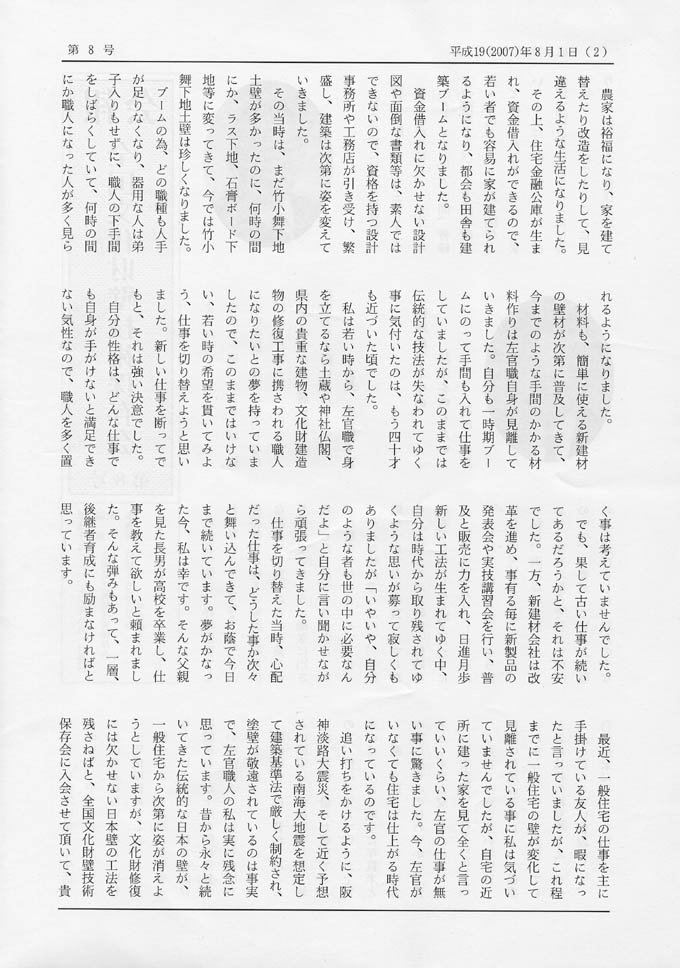 第8号
平成19(2007)年8月1日（2）
農家は裕福になり、家を建て
替えたり改造をしたりして、見
違えるような生活になりました。
その上、住宅金融公庫が生ま
れ、資金借入れができるので、
若い者でも容易に家が建てられ
るようになり、都会も田舎も建
築ブームとなりました。
資金借入れに欠かせない設計
図や面倒な書類等は、素人では
できないので、資格を持つ設計
事務所や工務店が引き受け、繁
盛し、建築は次第に姿を変えて
いきました。
その当時は、まだ竹小舞下地
土壁が多かったのに、何時の間
にか、ラス下地、石膏ボード下
地等に変ってきて、今では竹小
舞下地土壁は珍しくなりました。
ブームの為、どの職種も人手
が足りなくなり、器用な人は弟
子入りもせずに、職人の下手間
をしばらくしていて、何時の間
にか職人になった人が多く見ら
れるようになりました。
材料も、簡単に使える新建材
の壁材が次第に普及してきて、
今までのような手間のかかる材
料作りは左官職自身が見離して
いきました。自分も一時期ブー
ムにのって手間も入れて仕事を
していましたが、このままでは
伝統的な技法が失なわれてゆく
事に気付いたのは、もう四十才
も近づいた頃でした。
私は若い時から、左官職で身
を立てるなら土蔵や神社仏閣、
県内の貴重な建物、文化財建造
物の修復工事に携さわれる職人
になりたいとの夢を持っていま
したので、このままではいけな
い、若い時の希望を貫いてみよ
う、仕事を切り替えようと思い
ました。新しい仕事を断ってで
もと、それは強い決意でした。
自分の性格は、どんな仕事で
も自身が手がけないと満足でき
ない気性なので、職人を多く置
く事は考えていませんでした。
でも、果して古い仕事が続い
てあるだろうかと、それは不安
でした。一方、新建材会社は改
革を進め、事有る毎に新製品の
発表会や実技講習会を行い、普
及と販売に力を入れ、日進月歩
新しい工法が生まれてゆく中、
自分は時代から取り残されてゆ
くような思いが募って寂しくも
ありましたが「いやいや、自分
のような者も世の中に必要なん
だよ」と自分に言い聞かせなが
ら頑張ってきました。
仕事を切り替えた当時、心配
だった仕事は、どうした事か次々
と舞い込んできて、お蔭で今日
まで続いています。夢がかなっ
た今、私は幸です。そんな父親
を見た長男が高校を卒業し、仕
事を教えて欲しいと頼まれまし
た。そんな弾みもあって、一層、
後継者育成にも励まなければと
思っています。
最近、一般住宅の仕事を主に
手掛けている友人が、暇になっ
たと言っていましたが、これ程
までに一般住宅の壁が変化して
見離されている事に私は気づい
ていませんでしたが、自宅の近
所に建った家を見て全くと言っ
ていいくらい、左官の仕事が無
い事に驚きました。今、左官が
いなくても住宅は仕上がる時代
になっているのです。
追い打ちをかけるように、阪
神淡路大震災、そして近く予想
されている南海大地震を想定し
て建築基準法で厳しく制約され、
塗壁が敬遠されているのは事実
で、左官職人の私は実に残念に
思っています。昔から永々と続
いてきた伝統的な日本の壁が、
一般住宅から次第に姿が消えよ
うとしていますが、文化財修復
には欠かせない日本壁の工法を
残さねばと、全国文化財壁技術
保存会に入会させて頂いて、貴